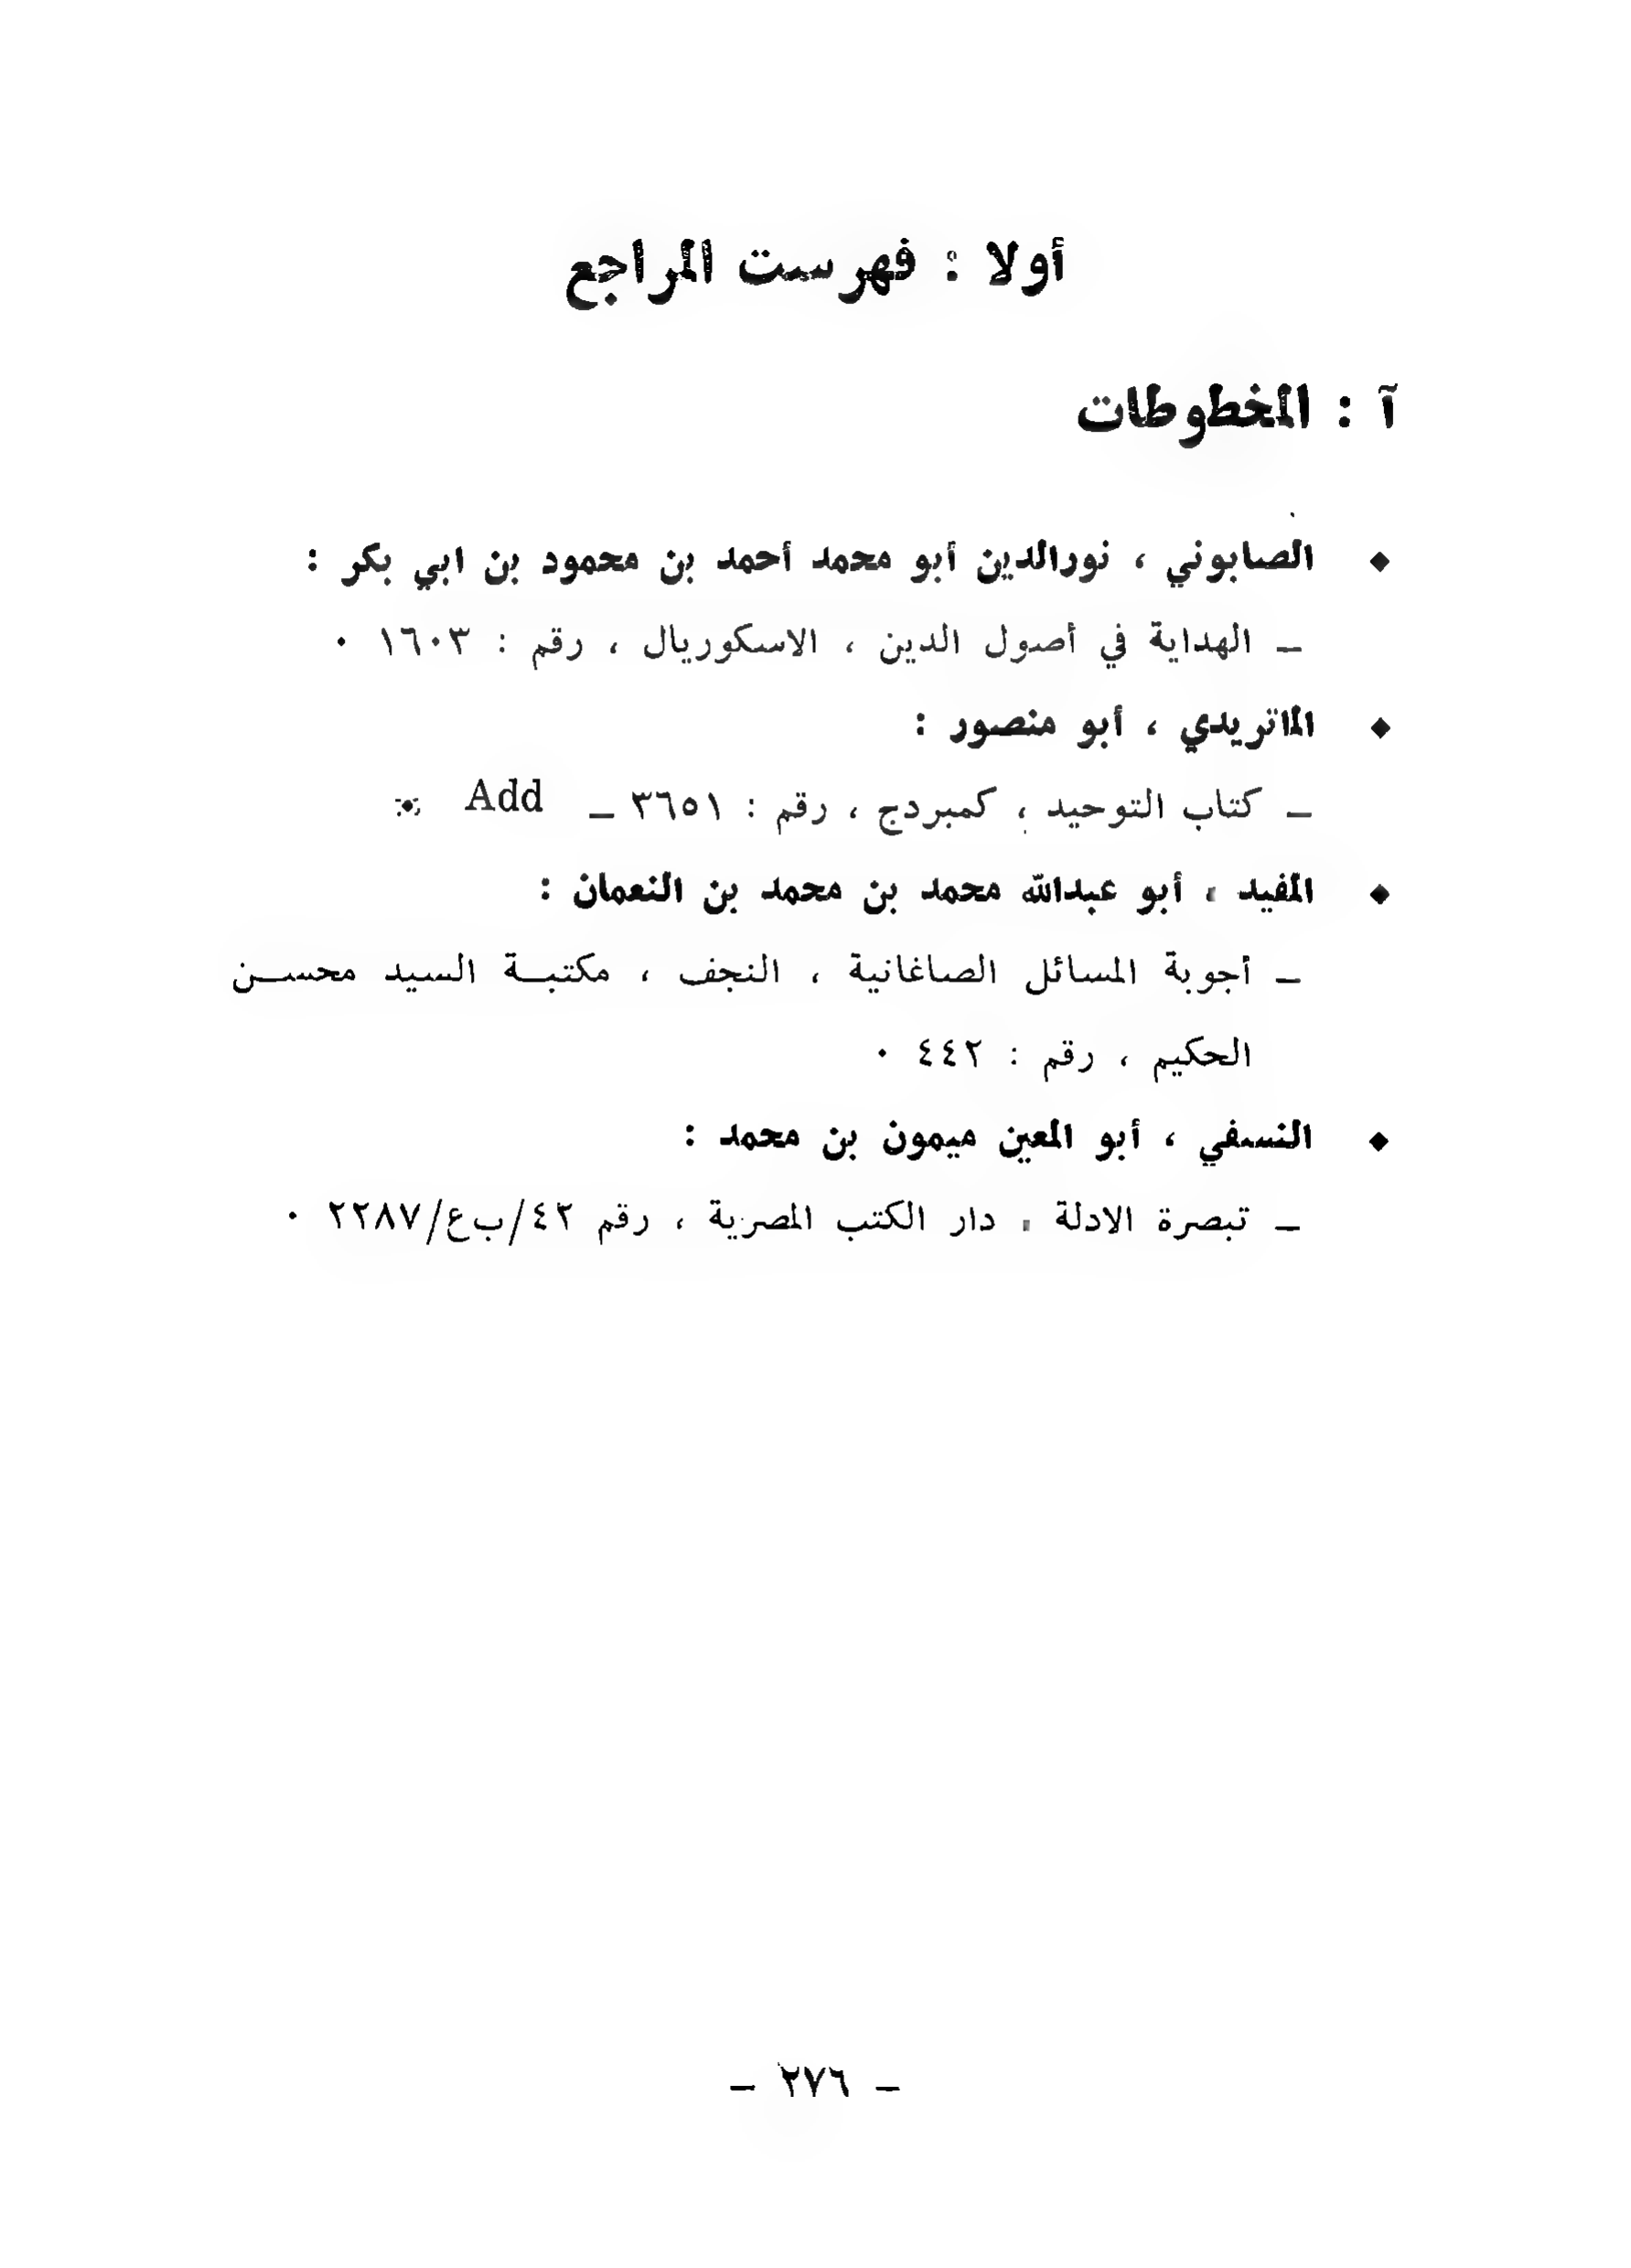 أولا : فهرست المراجع
آ : المخطوطات
◆ الصابوني ، نورالدين أبو محمد أحمد بن محمود بن ابي بكر :
ــ الهداية في أصول الدين ، الاسكوريال ، رقم : ١٦٠٣ ٠
◆ الماتريدي ، أبو منصور :
ــ كتاب التوحيد ، كمبردج ، رقم : ٣٦٥١ ــ Add ٠
◆ المفيد ، أبو عبدالله محمد بن محمد بن النعمان :
ــ أجوبة المسائل الصاغانية ، النجف ، مكتبــة السيد محســن
الحكيم ، رقم : ٤٤٢ ٠
◆ النسفي ، أبو المعين ميمون بن محمد :
ــ تبصرة الادلة ، دار الكتب المصرية ، رقم ٤٢/ب ع/٢٢٨٧ ٠
ــ ٢٧٦ ــ